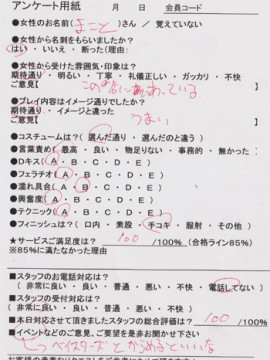 アンケート用紙　月　日　会員コード
●女性のお名前（まこと）さん / 覚えていない
●女性から名刺をもらいましたか？
はい・いいえ・断った(理由:
●女性から受けた雰囲気・印象は？
期待通り・明るい・丁寧・礼儀正しい・ガッカリ・不快
ご意見【この店にあっている
●プレイ内容はイメージ通りでしたか？
期待通り・イメージと違った
ご意見【うまい
●コスチュームは？（選んだ通り・選んだのと違う）
●言葉責め（最高・良い・物足りない・事務的・無かった）
●Dキス（A・B・C・D・E）
●フェラチオ（A・B・C・D・E）
●濡れ具合（A・B・C・D・E）
●興奮度（A・B・C・D・E）
●テクニック（A・B・C・D・E）
●フィニッシュは？（口内・素股・手コキ・服射・その他）
★サービスご満足度は？ 100 /100% (合格ライン85%)
※85%に満たなかった理由
■スタッフのお電話対応は？
（非常に良い・良い・普通・悪い・不快・電話してない）
■スタッフの受付対応は？
（非常に良い・良い・普通・悪い・不快）
■本日対応させて頂きましたスタッフの総合評価は？ 100 /100%
■イベントなどのご意見、ご要望を是非お聞かせ下さい
ベイスターズとからめるといいな